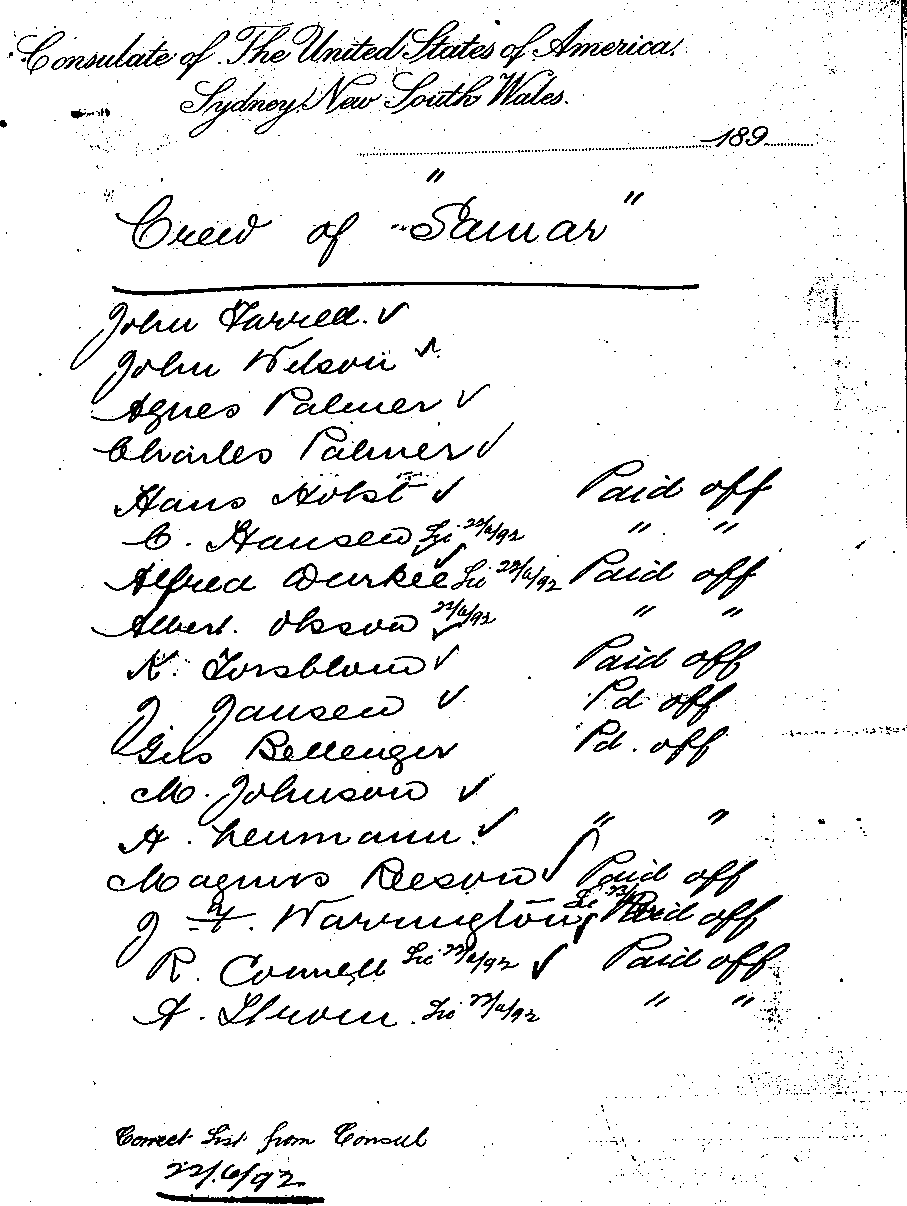 Consulate of The United States of America.
Sydney, New South Wales.
189
"
Crew of "Samar"
John Farrell. ✓
John Wilson ✓
Agnes Palmer ✓
Charles Palmer ✓
Hans Holst ✓ Paid off
C. Hansen 22/6/92 " "
Alfred Durkee ✓ 22/6/92 Paid off
Albert. Olsson 22/6/92 ✓ " "
K. Forsblom ✓ Paid off
J Jansen ✓ Pd off
Bellenger Pd. off
M. Johnson ✓
A. Neumann ✓ " "
Magnus Beson ✓ Paid off
J H. Warrington Paid off
R. Connell 22/6/92 ✓ Paid off
A. Strom. 22/6/92 " "
Correct List from Consul
22/6/92